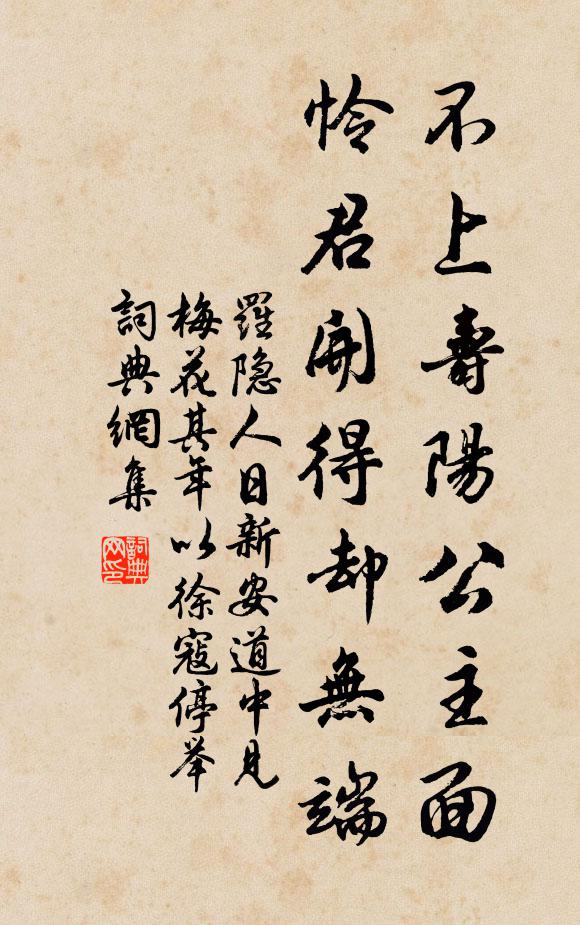 不上壽陽公主面
怜君開得却無端
羅隐人日新安道中見
梅花其年以徐寇停举
詞典網集
詞典网印